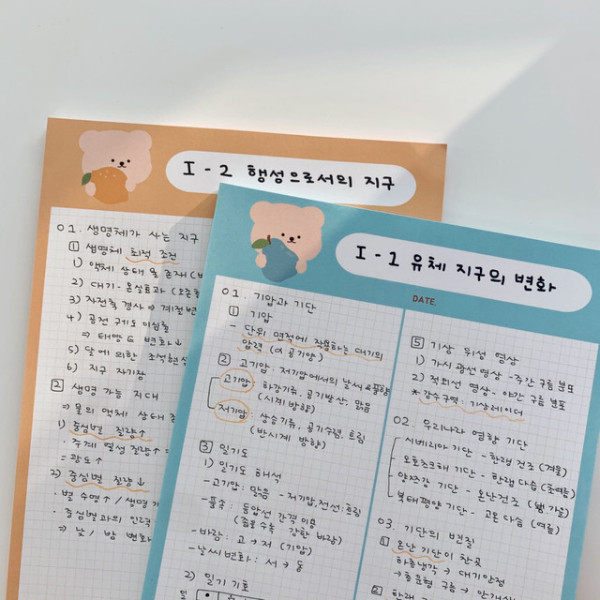 I - 2 행성으로서의 지구
01. 생명체가 사는 지구
1 생명체 최적 조건
1) 액체 상태 물 존재
2) 대기 - 온실효과
3) 자전축 경사 ⇒ 계절변
4) 공전 궤도 이심률
⇒ 태양E 변화↓
5) 달에 의한 조석현상
6) 지구 자기장
2 생명 가능 지대
⇒ 물의 액체 상태 존
1) 중심별 질량↑
· 주계열성 질량↑ =
= 광도↑
2) 중심별 질량↓
· 별 수명↑ / 생명
· 중심별과의 인력
⇒ 낮 / 밤 변화
I - 1 유체 지구의 변화
DATE.
01. 기압과 기단
1 기압
- 단위 면적에 작용하는 대기의
압력 (여 공기양)
2 고기압·저기압에서의 날씨&풍향
고기압 : 하강기류, 공기발산, 맑음
(시계 방향)
저기압 : 상승기류, 공기수렴, 흐림
(반시계 방향)
3 일기도
1) 일기도 해석
- 고기압 : 맑음 - 저기압, 전선 : 흐림
- 풍속 : 등압선 간격 이용
(좁을수록 강한 바람)
- 바람 : 고 → 저 (기압)
- 날씨변화 : 서 → 동
2) 일기 기호
5 기상 위성 영상
1) 가시 광선 영상 - 주간 구름 분포
2) 적외선 영상 - 야간 구름 분포
* 강수구역 : 기상레이더
02. 우리나라 영향 기단
시베리아 기단 - 한랭 건조 (겨울)
오호츠크해 기단 - 한랭 다습 (초여름)
양쯔강 기단 - 온난 건조 (봄, 가을)
북태평양 기단 - 고온 다습 (여름)
03. 기단의 변질
1 온난 기단이 찬곳
하층냉각 → 대기안정
→ 층운형 구름 → 안개
2 한랭